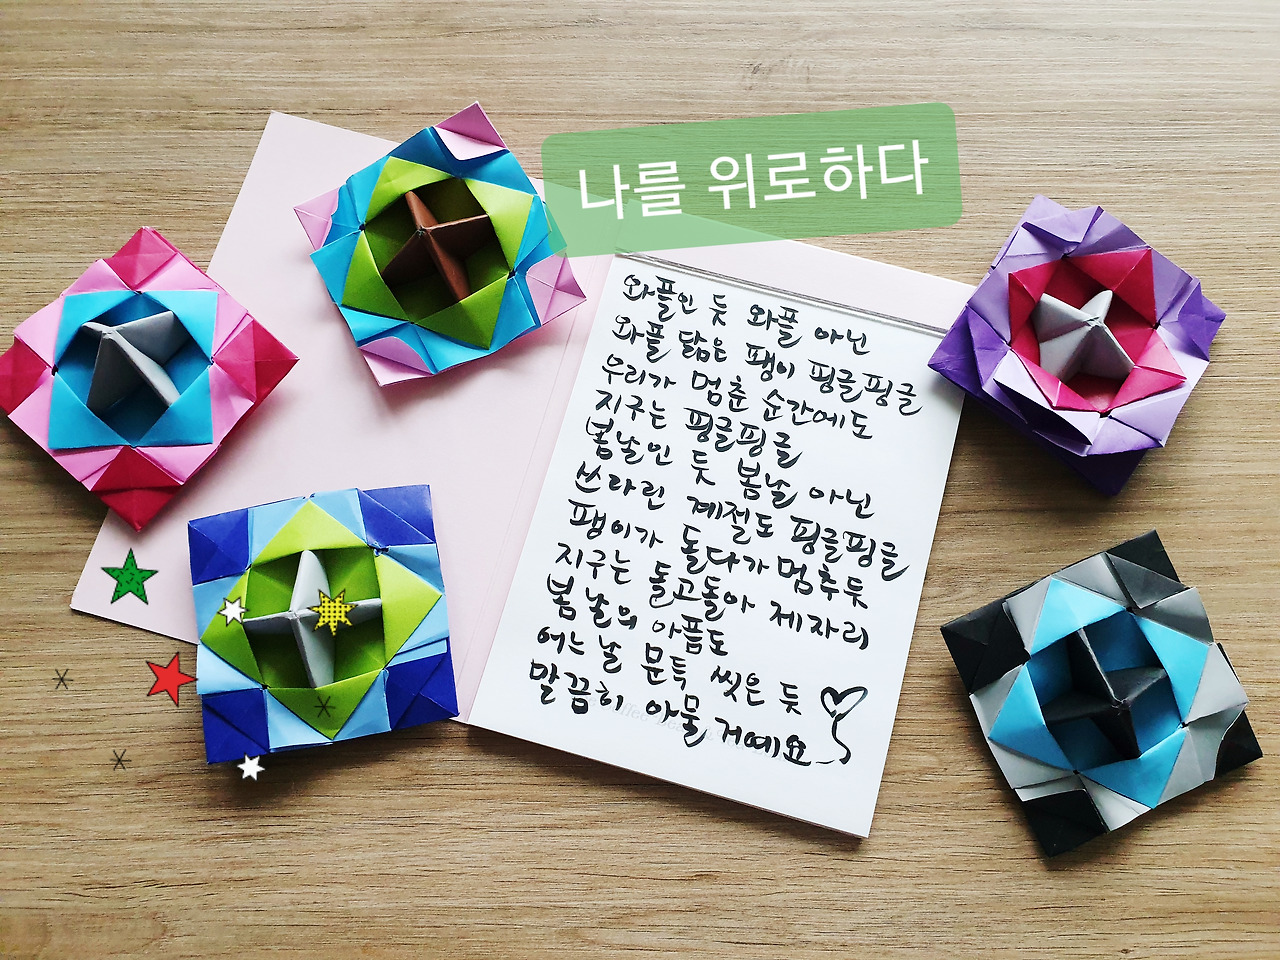 나를 위로하다
와플인 듯 와플 아닌
와플 닮은 팽이 핑글핑글
우리가 멈춘 순간에도
지구는 핑글핑글
봄날인 듯 봄날 아닌
쓰라린 계절도 핑글핑글
팽이가 돌다가 멈추듯
지구는 돌고돌아 제자리
봄날의 아픔도
어느날 문득 씻은 듯
말끔히 아물 거예요